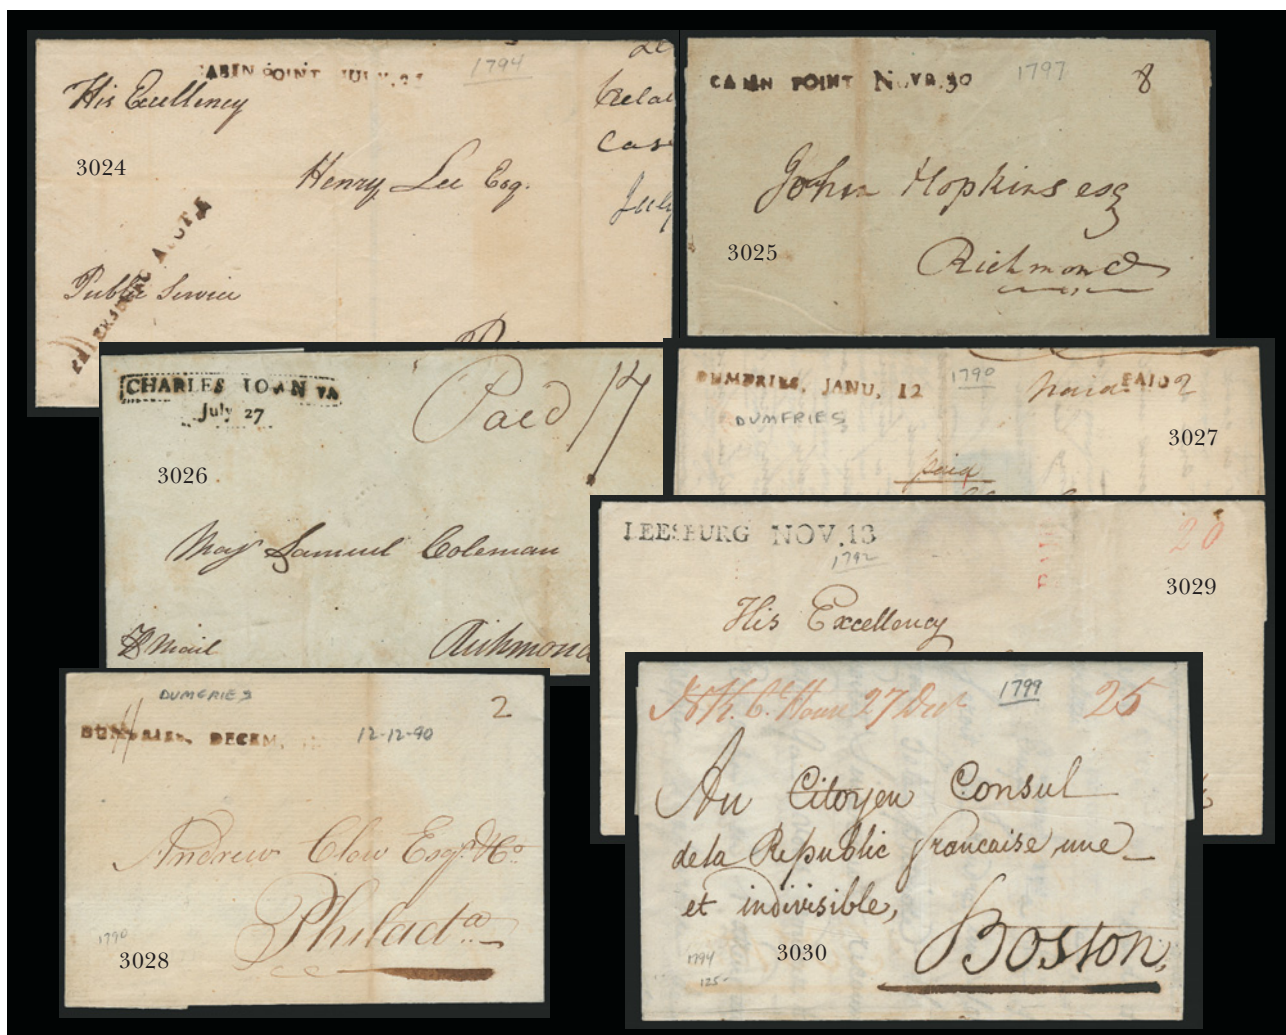 CABIN POINT JULY
1794
His Excellency
3024
Henry Lee Esq.
Public Service
July
CABIN POINT NOVR. 30
1797
8
John Hopkins esq
3025
Richmond
CHARLES TOWN VA
July 27
Paid 17
3026
Maj Samuel Coleman
Mail
Richmond
DUMFRIES, JANU, 12
1790
paid PAID 2
DUMFRIES
3027
paid
LEESBURG NOV. 13
1792
PAID
20
3029
His Excellency
DUMFRIES
2
DUMFRIES, DECEM,
12-12-90
Andrew Clow Esqr. & Co.
Philada.
1790
3028
27 Decr
1799
25
Au Citoyen Consul
de la Republic francaise une
et indivisible,
Boston,
3030
1794
125-